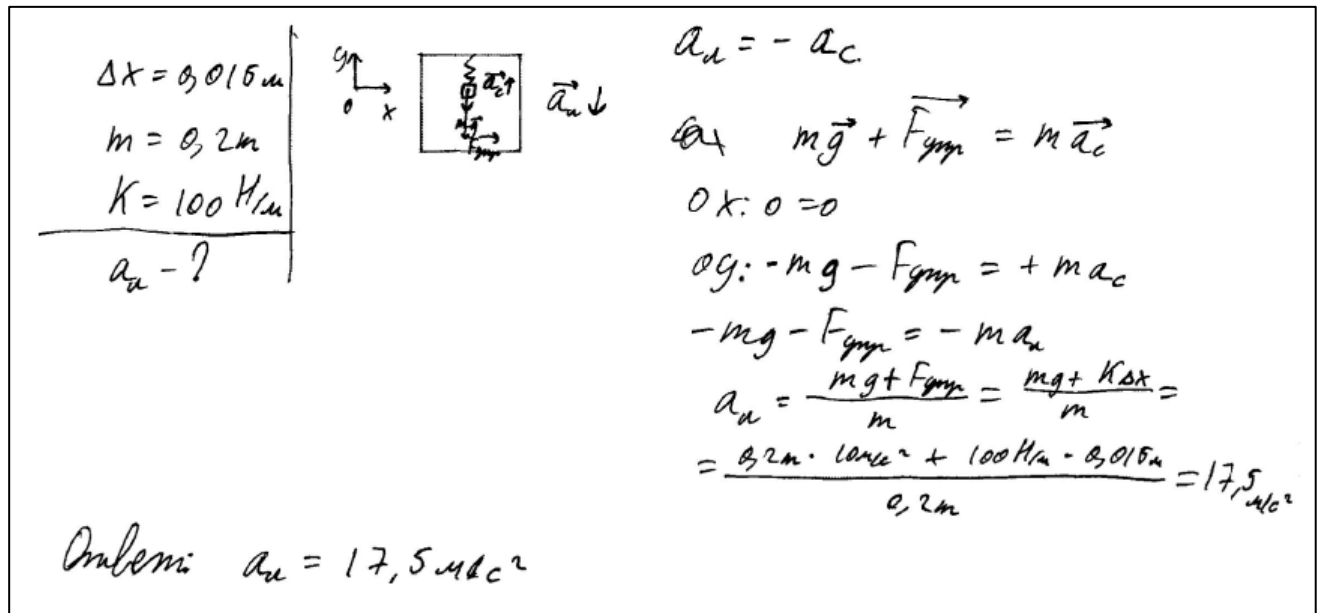 Δx = 0,015 м
m = 0,2 m
K = 100 Н/м
aл - ?
y
0
x
aс↑
mg
Fупр
aл ↓
aл = - aс
mg + Fупр = maс
Ox: 0 = 0
oy: -mg - Fупр = + maс
-mg - Fупр = - maл
aл = (mg + Fупр)/m = (mg + KΔx)/m =
= (0,2m · 10м/с² + 100Н/м · 0,015м)/0,2m = 17,5 м/с²
Ответ: aл = 17,5 м/с²